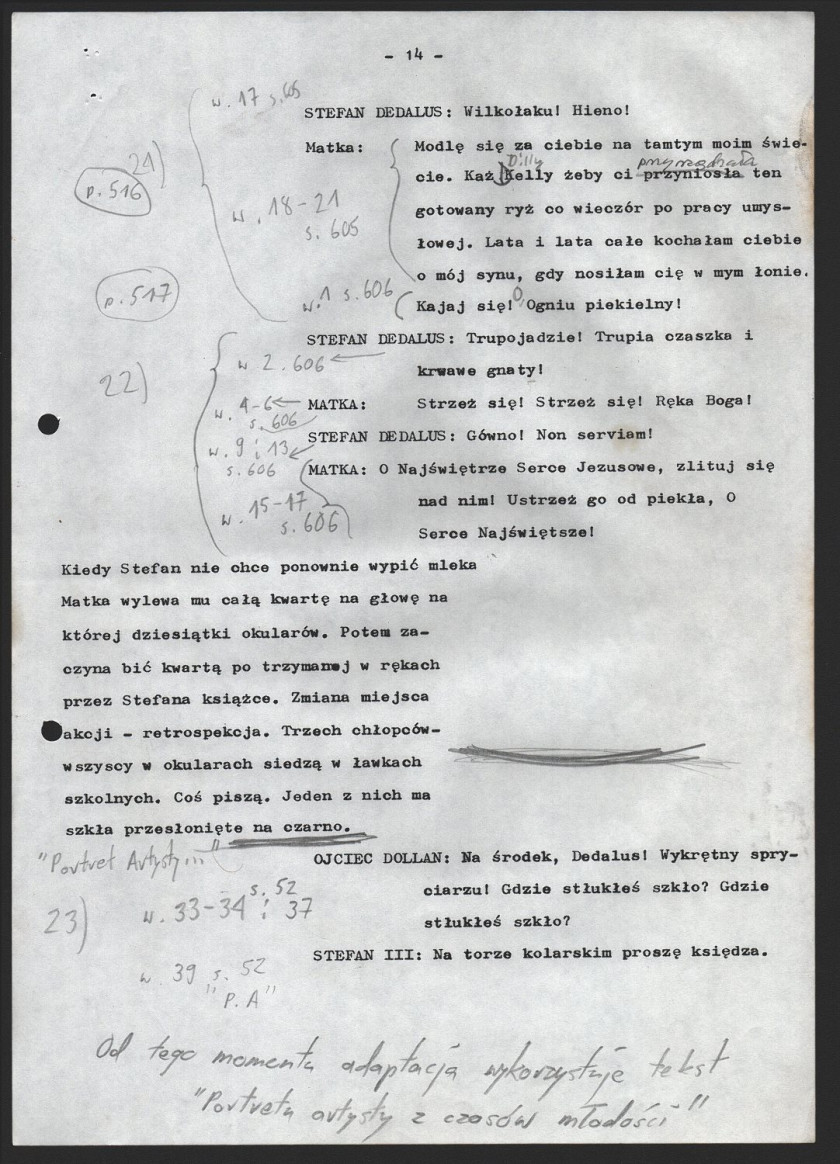 - 14 -
w. 17 s. 605
STEFAN DEDALUS: Wilkołaku! Hieno!
21)
p. 516
w. 18-21
s. 605
Matka: Modlę się za ciebie na tamtym moim świe-
Dilly przyrządzała
cie. Każ Kelly żeby ci przyniosła ten
gotowany ryż co wieczór po pracy umys-
łowej. Lata i lata całe kochałam ciebie
o mój synu, gdy nosiłam cię w mym łonie.
p. 517
w. 1 s. 606
Kajaj się! O, Ogniu piekielny!
STEFAN DEDALUS: Trupojadzie! Trupia czaszka i
22)
w 2. 606
krwawe gnaty!
w. 4-6
s. 606
MATKA: Strzeż się! Strzeż się! Ręka Boga!
w. 9 i 13
s. 606
STEFAN DEDALUS: Gówno! Non serviam!
w. 15-17
s. 606
MATKA: O Najświętrze Serce Jezusowe, zlituj się
nad nim! Ustrzeż go od piekła, O
Serce Najświętsze!
Kiedy Stefan nie chce ponownie wypić mleka
Matka wylewa mu całą kwartę na głowę na
której dziesiątki okularów. Potem za-
czyna bić kwartą po trzymanej w rękach
przez Stefana książce. Zmiana miejsca
akcji - retrospekcja. Trzech chłopców-
wszyscy w okularach siedzą w ławkach
szkolnych. Coś piszą. Jeden z nich ma
szkła przesłonięte na czarno.
"Portret Artysty..."
23)
w. 33-34 i 37
s. 52
OJCIEC DOLLAN: Na środek, Dedalus! Wykrętny spry-
ciarzu! Gdzie stłukłeś szkło? Gdzie
stłukłeś szkło?
w. 39 s. 52
"P.A"
STEFAN III: Na torze kolarskim proszę księdza.
Od tego momentu adaptacja wykorzystuje tekst
"Portretu artysty z czasów młodości"